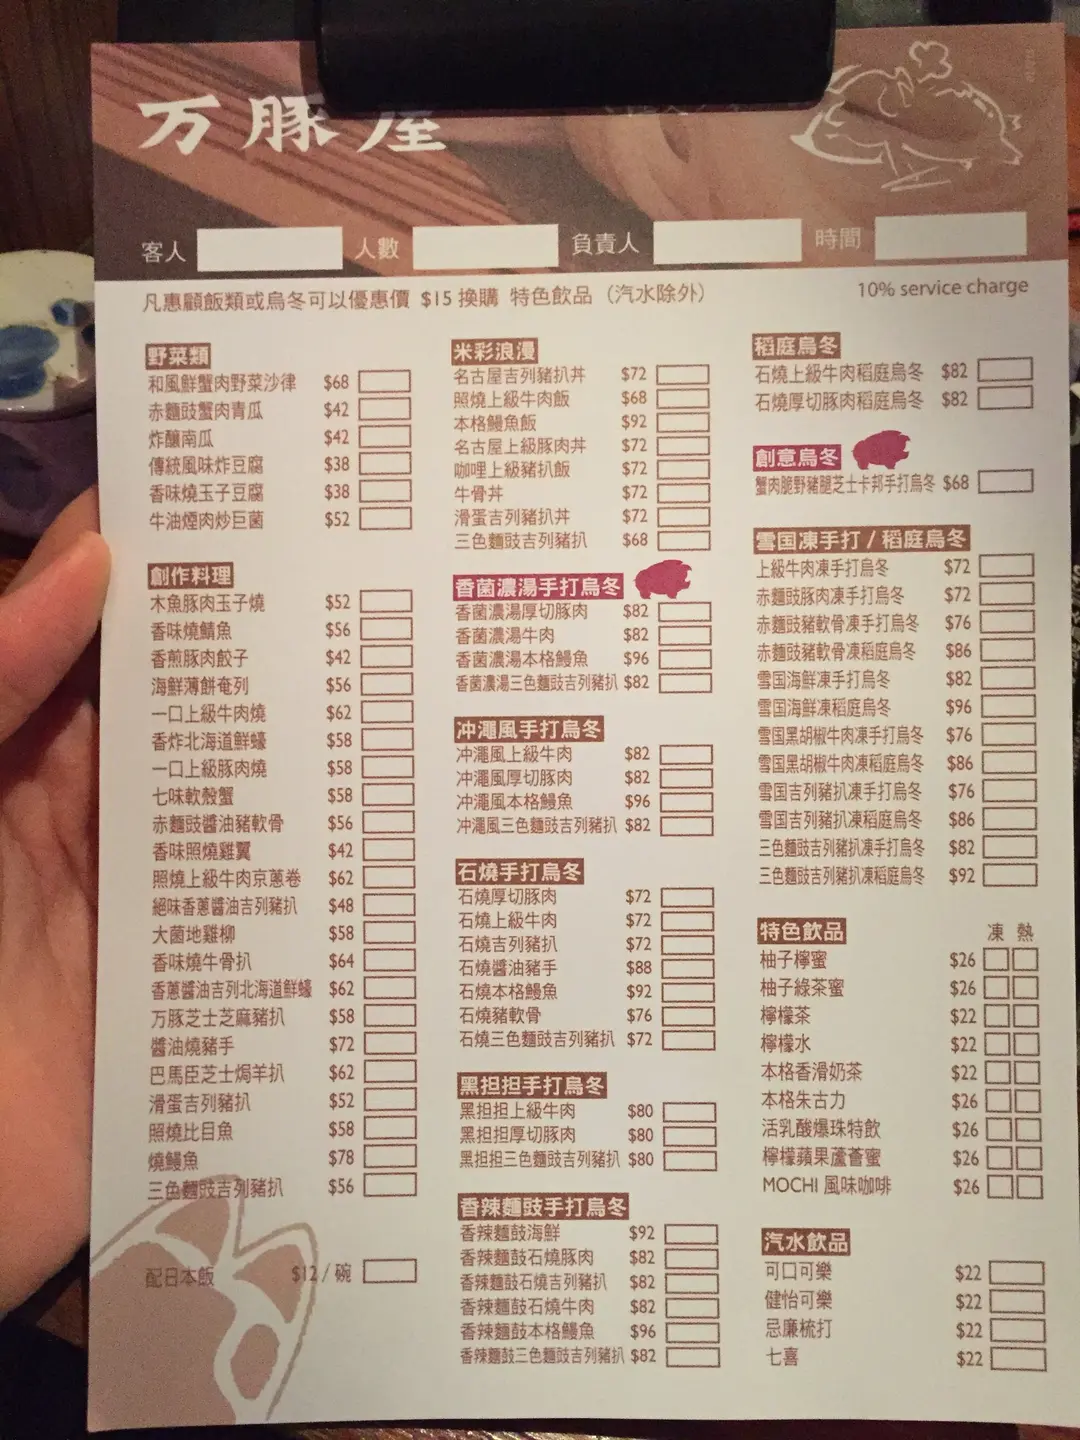 万豚屋
客人 人數 負責人 時間
凡惠顧飯類或烏冬可以優惠價 $15 換購 特色飲品 （汽水除外）
10% service charge
野菜類
和風鮮蟹肉野菜沙律 $68
赤麵豉蟹肉青瓜 $42
炸釀南瓜 $42
傳統風味炸豆腐 $38
香味燒玉子豆腐 $38
牛油煙肉炒巨菌 $52
創作料理
木魚豚肉玉子燒 $52
香味燒鯖魚 $56
香煎豚肉餃子 $42
海鮮薄餅奄列 $56
一口上級牛肉燒 $62
香炸北海道鮮蠔 $58
一口上級豚肉燒 $58
七味軟殼蟹 $58
赤麵豉醬油豬軟骨 $56
香味照燒雞翼 $42
照燒上級牛肉京蔥卷 $62
絕味香蔥醬油吉列豬扒 $48
大菌地雞柳 $58
香味燒牛骨扒 $64
香蔥醬油吉列北海道鮮蠔 $62
万豚芝士芝麻豬扒 $58
醬油燒豬手 $72
巴馬臣芝士焗羊扒 $62
滑蛋吉列豬扒 $52
照燒比目魚 $58
燒鰻魚 $78
三色麵豉吉列豬扒 $56
配日本飯 $12 / 碗
米彩浪漫
名古屋吉列豬扒丼 $72
照燒上級牛肉飯 $68
本格鰻魚飯 $92
名古屋上級豚肉丼 $72
咖哩上級豬扒飯 $72
牛骨丼 $72
滑蛋吉列豬扒丼 $72
三色麵豉吉列豬扒 $68
香菌濃湯手打烏冬
香菌濃湯厚切豚肉 $82
香菌濃湯牛肉 $82
香菌濃湯本格鰻魚 $96
香菌濃湯三色麵豉吉列豬扒 $82
沖澠風手打烏冬
沖澠風上級牛肉 $82
沖澠風厚切豚肉 $82
沖澠風本格鰻魚 $96
沖澠風三色麵豉吉列豬扒 $82
石燒手打烏冬
石燒厚切豚肉 $72
石燒上級牛肉 $72
石燒吉列豬扒 $72
石燒醬油豬手 $88
石燒本格鰻魚 $92
石燒豬軟骨 $76
石燒三色麵豉吉列豬扒 $72
黑担担手打烏冬
黑担担上級牛肉 $80
黑担担厚切豚肉 $80
黑担担三色麵豉吉列豬扒 $80
香辣麵鼓手打烏冬
香辣麵鼓海鮮 $92
香辣麵鼓石燒豚肉 $82
香辣麵鼓石燒吉列豬扒 $82
香辣麵鼓石燒牛肉 $82
香辣麵鼓本格鰻魚 $96
香辣麵鼓三色麵豉吉列豬扒 $82
稻庭烏冬
石燒上級牛肉稻庭烏冬 $82
石燒厚切豚肉稻庭烏冬 $82
創意烏冬
蟹肉脆野豬腿芝士卡邦手打烏冬 $68
雪国凍手打 / 稻庭烏冬
上級牛肉凍手打烏冬 $72
赤麵豉豚肉凍手打烏冬 $72
赤麵豉豬軟骨凍手打烏冬 $76
赤麵豉豬軟骨凍稻庭烏冬 $86
雪国海鮮凍手打烏冬 $82
雪国海鮮凍稻庭烏冬 $96
雪国黑胡椒牛肉凍手打烏冬 $76
雪国黑胡椒牛肉凍稻庭烏冬 $86
雪国吉列豬扒凍手打烏冬 $76
雪国吉列豬扒凍稻庭烏冬 $86
三色麵豉吉列豬扒凍手打烏冬 $82
三色麵豉吉列豬扒凍稻庭烏冬 $92
特色飲品 凍 熱
柚子檸蜜 $26
柚子綠茶蜜 $26
檸檬茶 $22
檸檬水 $22
本格香滑奶茶 $22
本格朱古力 $26
活乳酸爆珠特飲 $26
檸檬蘋果蘆薈蜜 $26
MOCHI 風味咖啡 $26
汽水飲品
可口可樂 $22
健怡可樂 $22
忌廉梳打 $22
七喜 $22